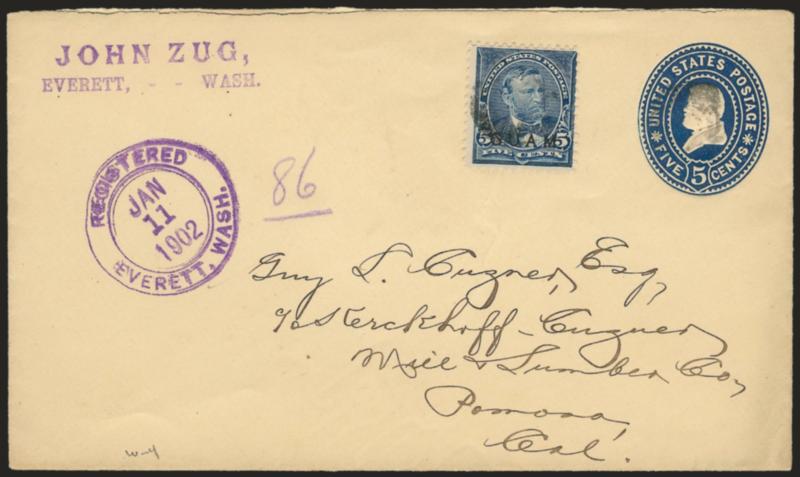 JOHN ZUG,
EVERETT, - - WASH.
UNITED STATES POSTAGE
5 GUAM 5
FIVE CENTS
UNITED STATES POSTAGE
FIVE 5 CENTS
REGISTERED
JAN
11
1902
EVERETT, WASH.
86
Guy L. Cuzner, Esq,
c/o Kerckhoff-Cuzner
Mill & Lumber Co,
Pomona,
Cal.
W-4